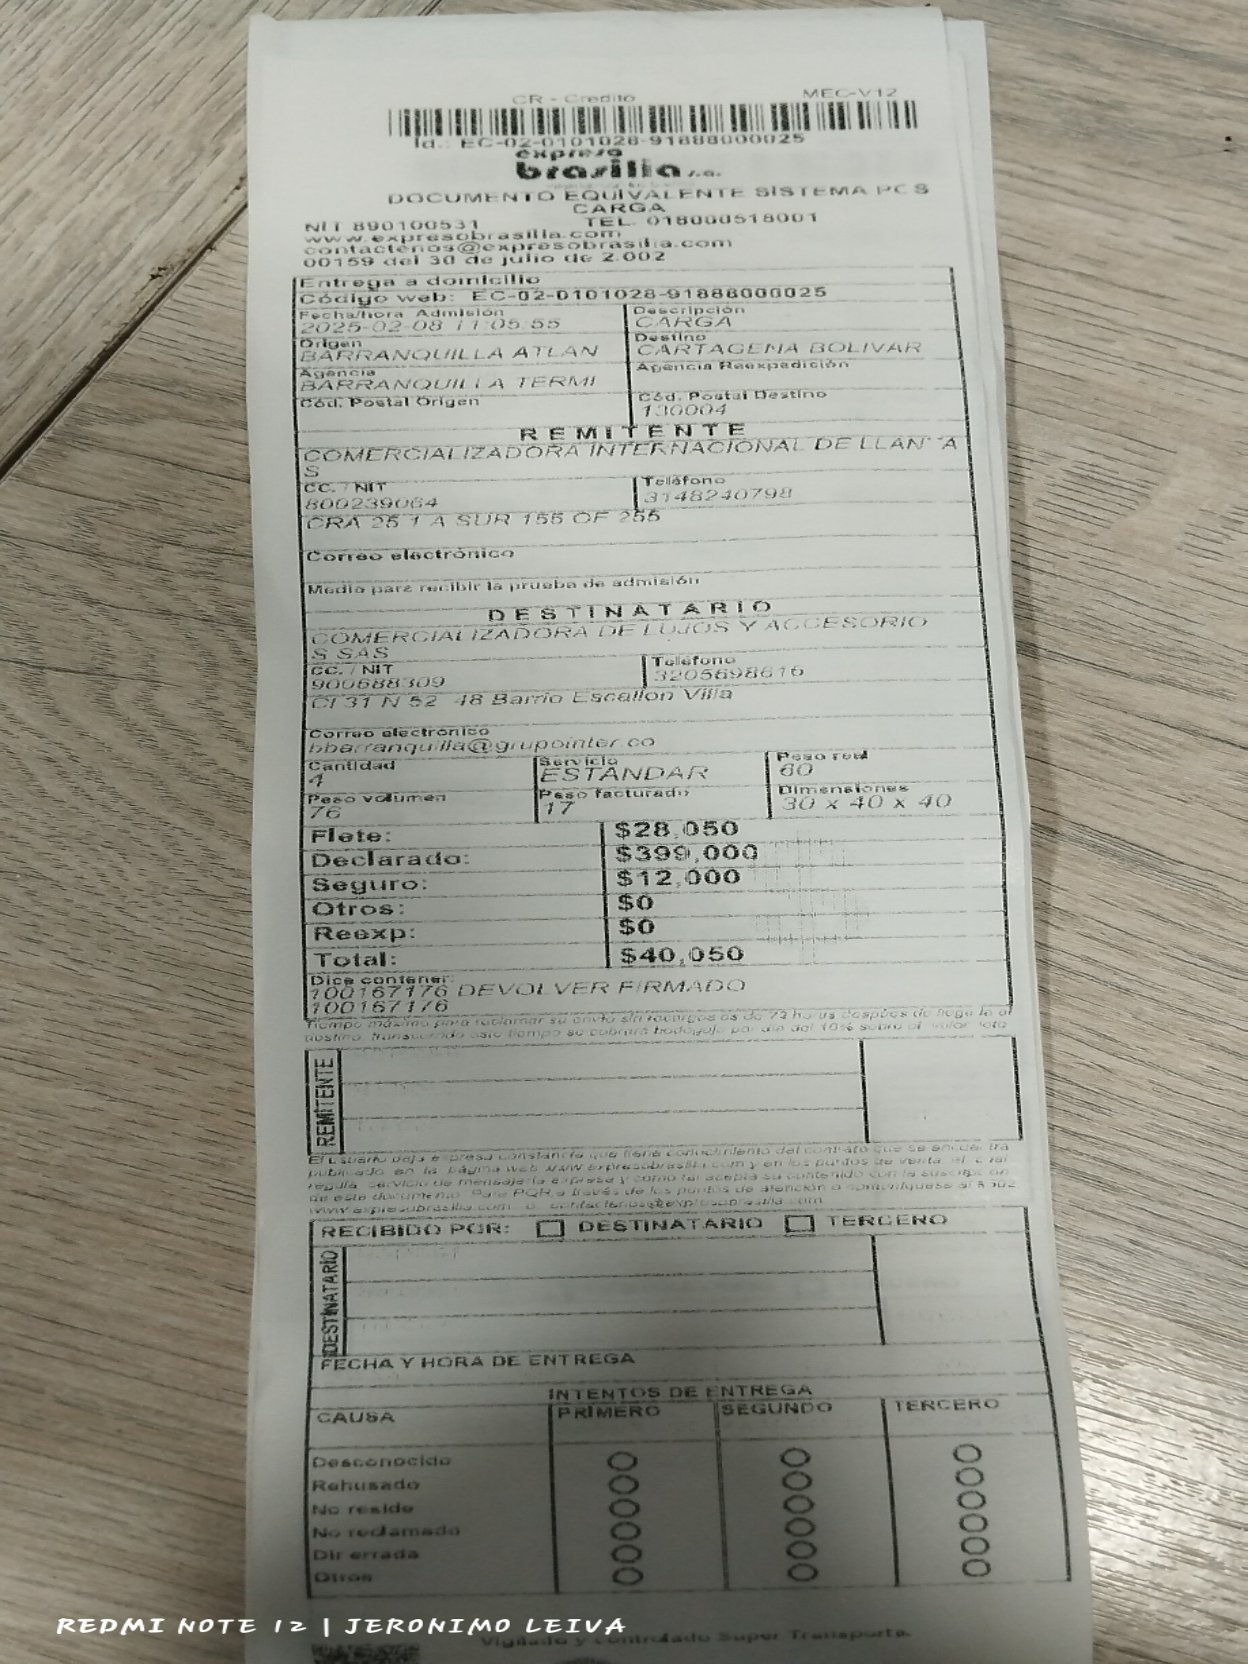 CR - Credito MEC-V12
Id.: EC-02-0101028-91888000025
expreso
brasilia s.a.
DOCUMENTO EQUIVALENTE SISTEMA PCS
CARGA
NIT 890100531 TEL. 018000518001
www.expresobrasilia.com
contactenos@expresobrasilia.com
00159 del 30 de julio de 2.002
Entrega a domicilio
Código web: EC-02-0101028-91888000025
Fecha/hora Admisión Descripción
2025-02-08 11:05:55 CARGA
Origen Destino
BARRANQUILLA ATLAN CARTAGENA BOLIVAR
Agencia Agencia Reexpedición
BARRANQUILLA TERMI
Cód. Postal Origen Cód. Postal Destino
130004
REMITENTE
COMERCIALIZADORA INTERNACIONAL DE LLANTA
S
CC. / NIT Teléfono
800239064 3148240798
CRA 25 1 A SUR 155 OF 255
Correo electrónico
Medio para recibir la prueba de admisión
DESTINATARIO
COMERCIALIZADORA DE LUJOS Y ACCESORIO
S SAS
CC. / NIT Teléfono
900688309 3205698616
Cl 31 N 52 48 Barrio Escallon Villa
Correo electrónico
bbarranquilla@grupointer.co
Cantidad Servicio Peso real
4 ESTANDAR 60
Peso volumen Peso facturado Dimensiones
76 17 30 x 40 x 40
Flete: $28,050
Declarado: $399,000
Seguro: $12,000
Otros: $0
Reexp: $0
Total: $40,050
Dice contener:
100167176 DEVOLVER FIRMADO
100167176
Tiempo máximo para reclamar su envío sin recargos es de 72 horas después de llegada al
destino, transcurrido este tiempo se cobrará bodegaje por día del 10% sobre el valor flete
REMITENTE
El usuario deja expresa constancia que tiene conocimiento del contrato que se encuentra
publicado en la página web www.expresobrasilia.com y en los puntos de venta, el cual
regula servicio de mensajería expresa y como tal acepta su contenido con la suscripción
de este documento. Para PQR a través de los puntos de atención o comuníquese al
www.expresobrasilia.com o contactenos@expresobrasilia.com
RECIBIDO POR: DESTINATARIO TERCERO
DESTINATARIO
FECHA Y HORA DE ENTREGA
INTENTOS DE ENTREGA
CAUSA PRIMERO SEGUNDO TERCERO
Desconocido
Rehusado
No reside
No reclamado
Dir errada
Otros
REDMI NOTE 12 | JERONIMO LEIVA
Vigilado y controlado Super Transporte.